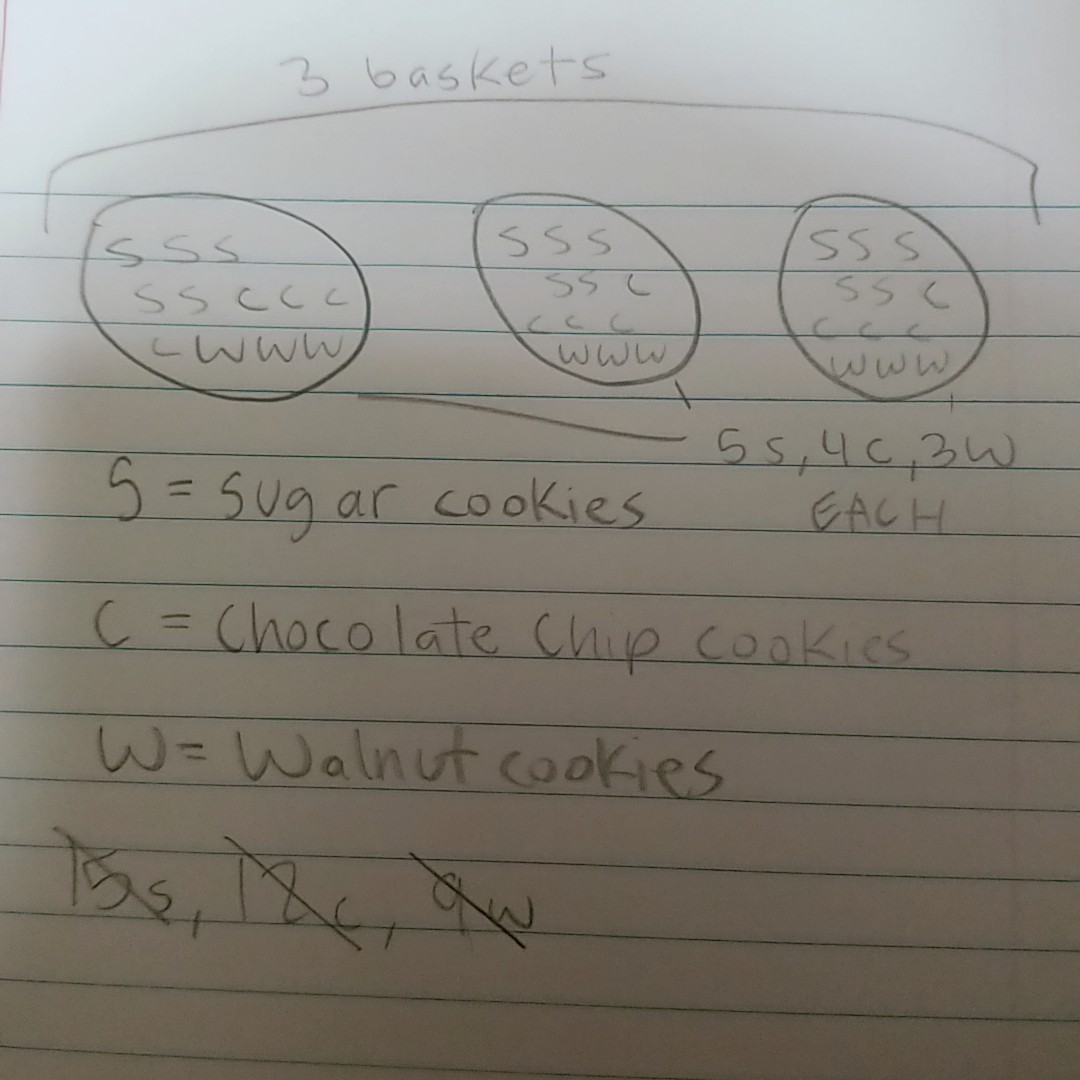 3 baskets
S S S
S S C C C
C W W W
S S S
S S C
C C C
W W W
S S S
S S C
C C C
W W W
5s, 4c, 3w
EACH
S = Sugar cookies
C = Chocolate Chip cookies
W = Walnut cookies
15s, 12c, 9w